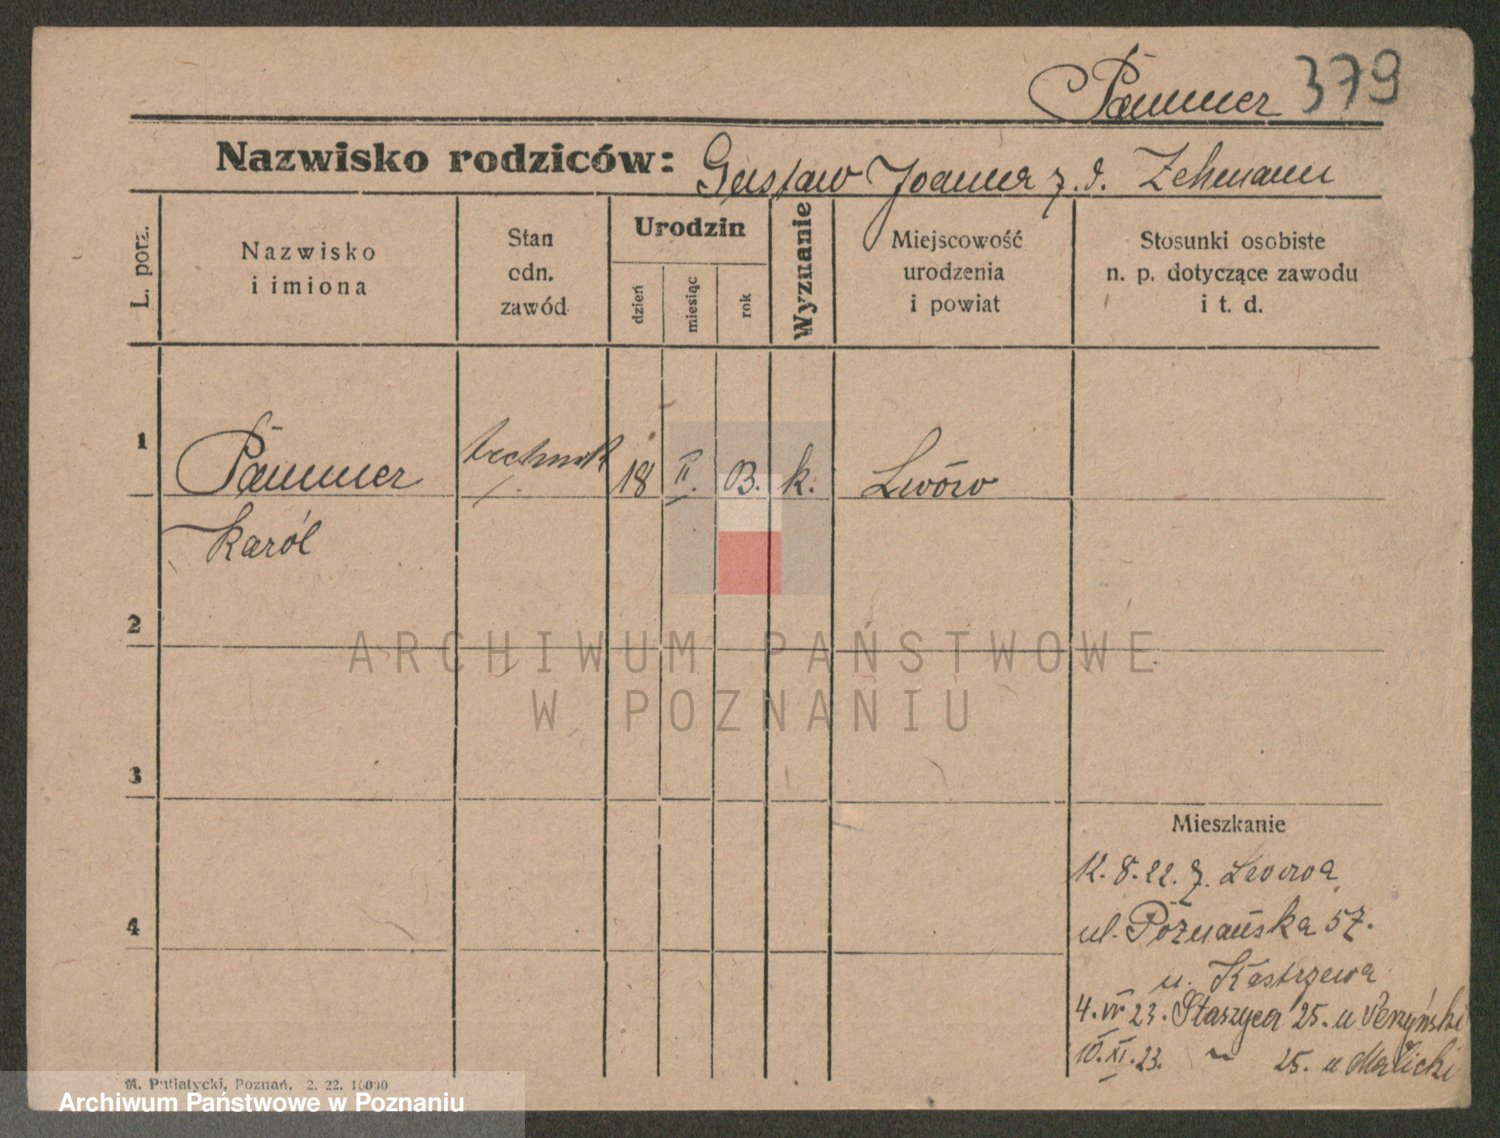 Pammer 379
Nazwisko rodziców: Gustaw Joanna z. d. Zehmann
L. porz.
Nazwisko
i imiona
Stan
odn.
zawód
Urodzin
dzień
miesiąc
rok
Wyznanie
Miejscowość
urodzenia
i powiat
Stosunki osobiste
n. p. dotyczące zawodu
i t. d.
1
Pammer
Karól
technik
18
II.
03.
k.
Lwów
2
3
4
ARCHIWUM PAŃSTWOWE
W POZNANIU
Mieszkanie
12.8.22. z. Lwowa
ul. Poznańska 57.
u. Kastrzewa
4. VI 23. Staszyca 25. u
10. XI. 23. ~ 25. u
M. Putiatycki, Poznań, 2. 22. 10000
Archiwum Państwowe w Poznaniu